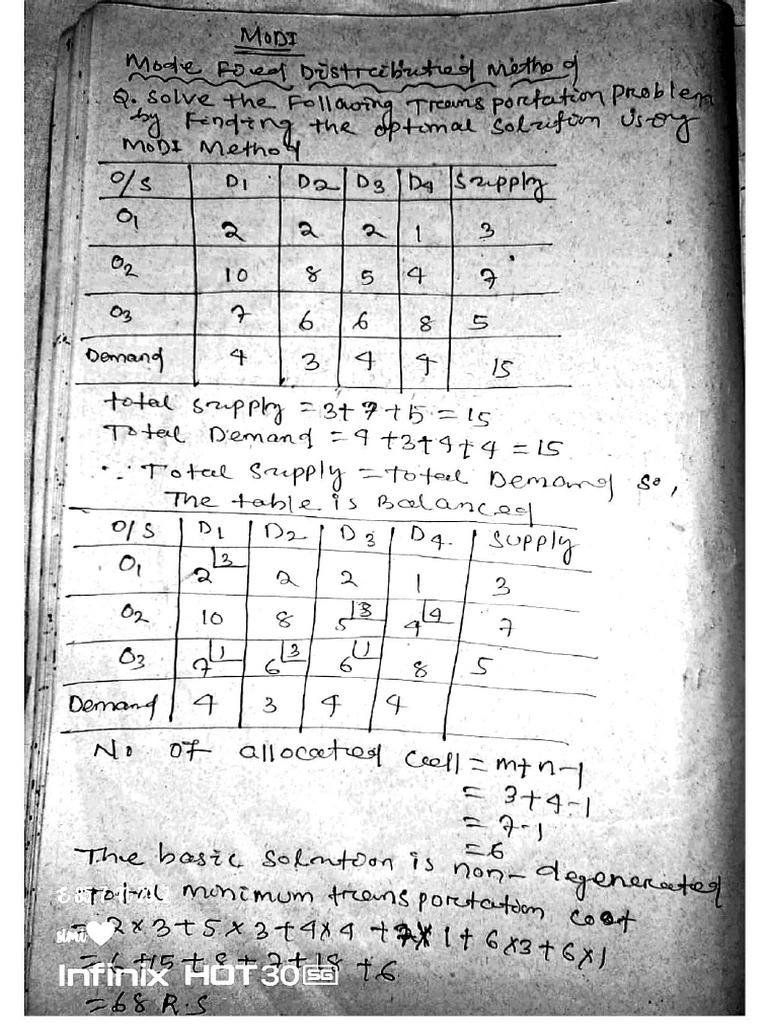 MODI
Mode Fired Distributed Method
Q. Solve the Following Transportation Problem
by Finding the optimal solution using
MODI Method
O/S D1 D2 D3 D4 Supply
O1 2 2 2 1 3
O2 10 8 5 4 7
O3 7 6 6 8 5
Demand 4 3 4 4 15
total supply = 3+7+5 = 15
Total Demand = 4+3+4+4 = 15
∵ Total Supply = total Demand so,
The table is Balanced
O/S D1 D2 D3 D4. Supply
O1 2 3 2 2 1 3
O2 10 8 5 3 4 4 7
O3 7 1 6 3 6 1 8 5
Demand 4 3 4 4
No of allocated Cell = m+n-1
= 3+4-1
= 7-1
= 6
The basic solution is non-degenerated
minimum transportation cost
= 2×3+5×3+4×4+7×1+6×3+6×1
= 6+15+8+7+18+6
= 68 R.S
Infinix HOT 30 5G